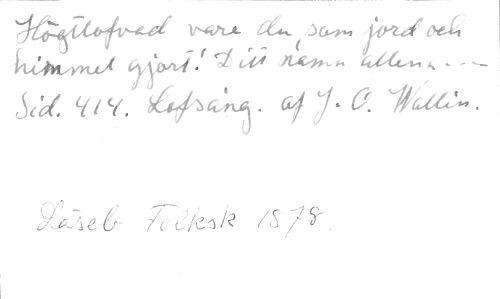 Högtlofvad vare du, som jord och
himmel gjort! Ditt namn allena ---
Sid. 414. Lofsång. af J. O. Wallin.
Läseb Folksk 1878.